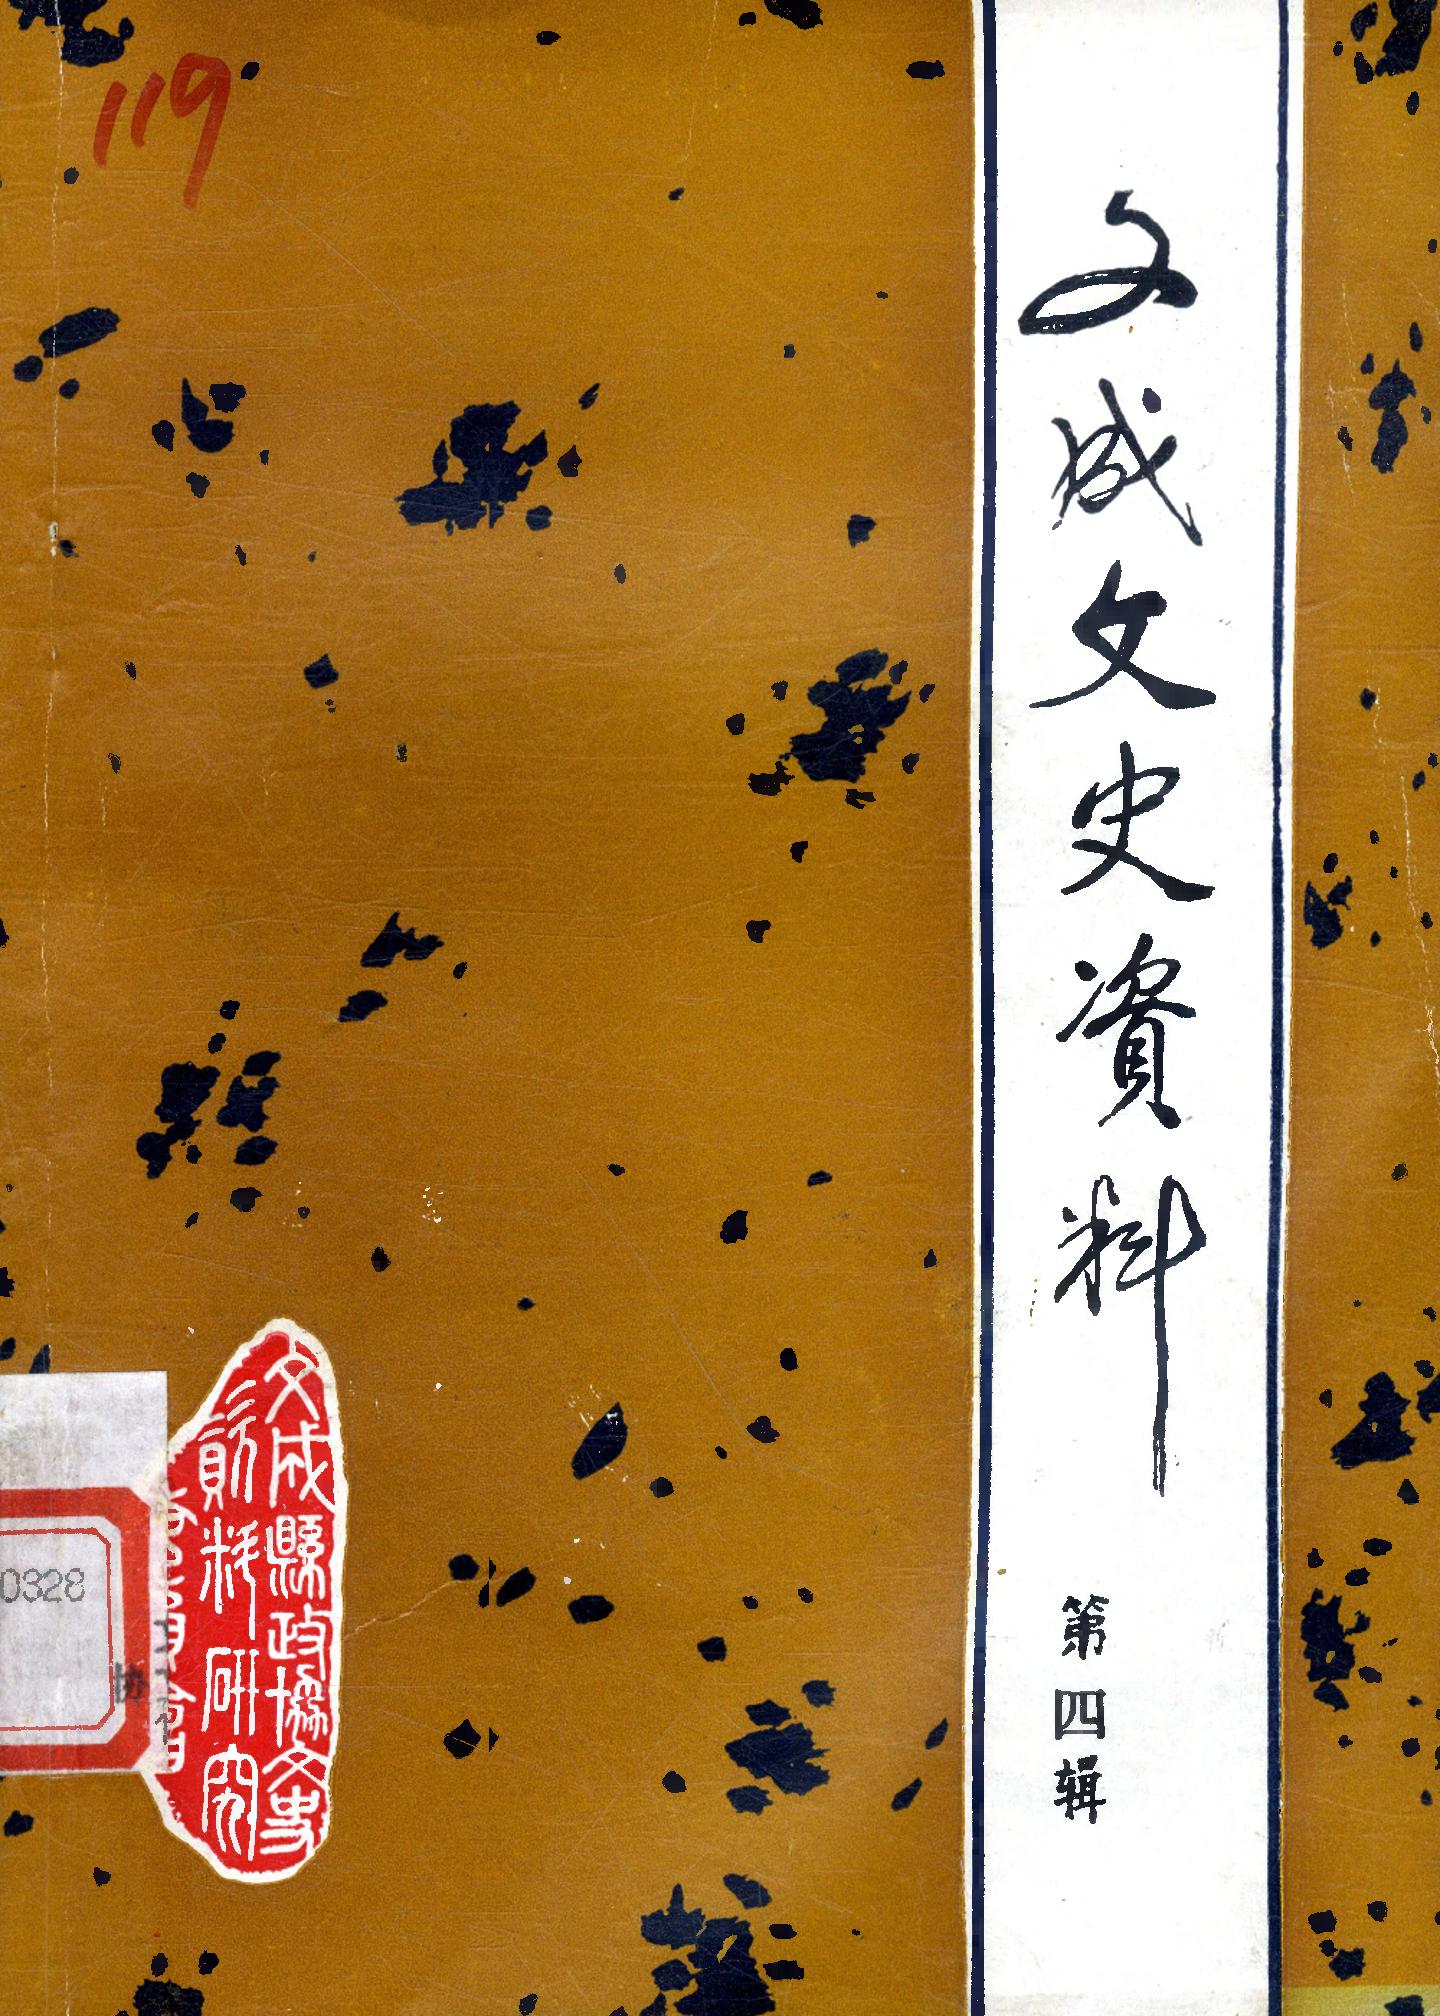 文成文史資料
第四辑
119
文成縣政協文史
資料研究
0328
协